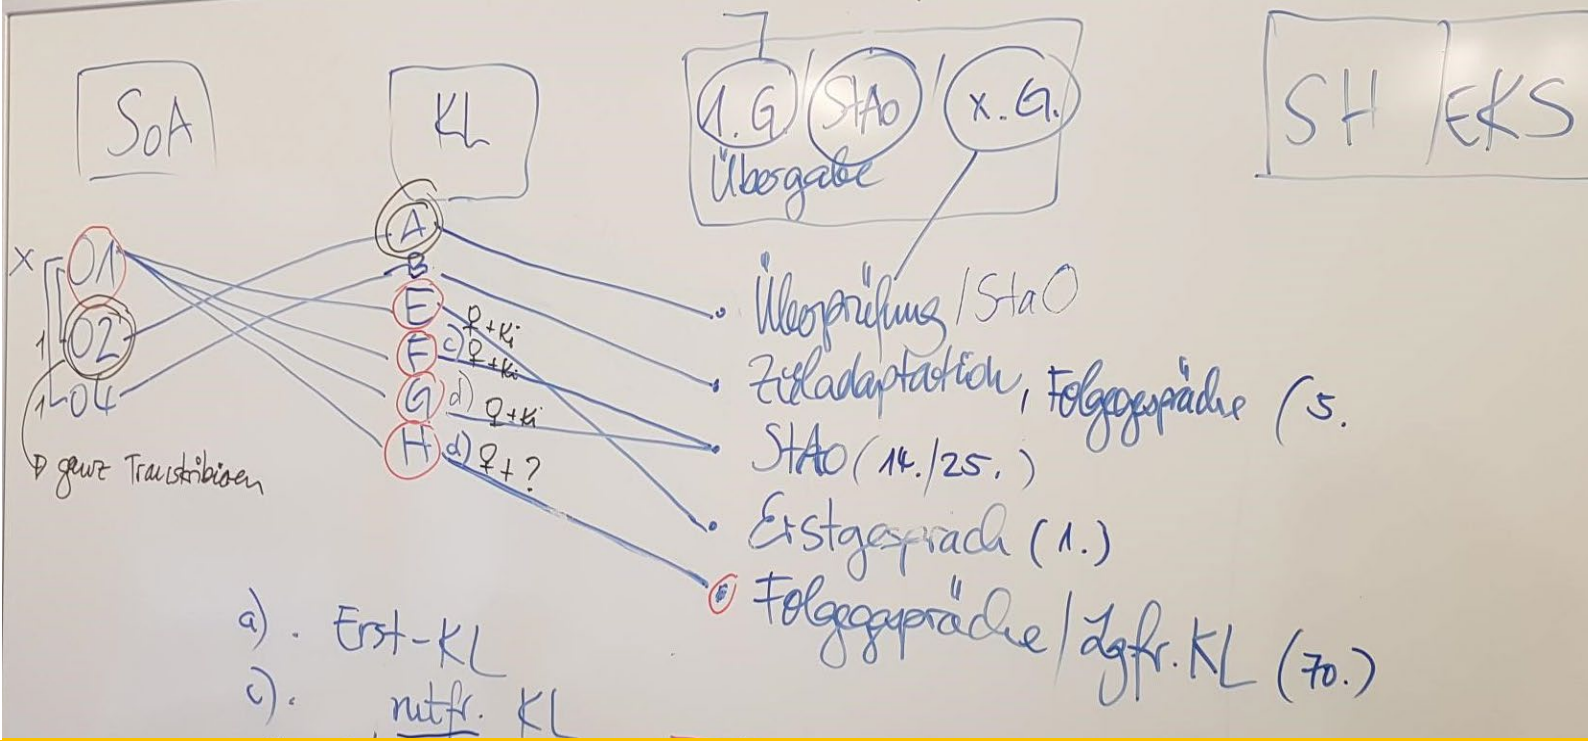 SoA
KL
1.G / StAo / x.G.
Übergabe
SH / EKS
x 01
1 02
1 04
ganz Transkribieren
A
B
E ♀+Ki
F c) ♀+Ki
G d) ♀+Ki
H d) ♀+?
Überprüfung / StaO
Zieladaptation, Folgegespräche (5.
StAo (14./25.)
Erstgespräch (1.)
Folgegespräche / Lgfr. KL (70.)
a). Erst-KL
c). mtfr. KL